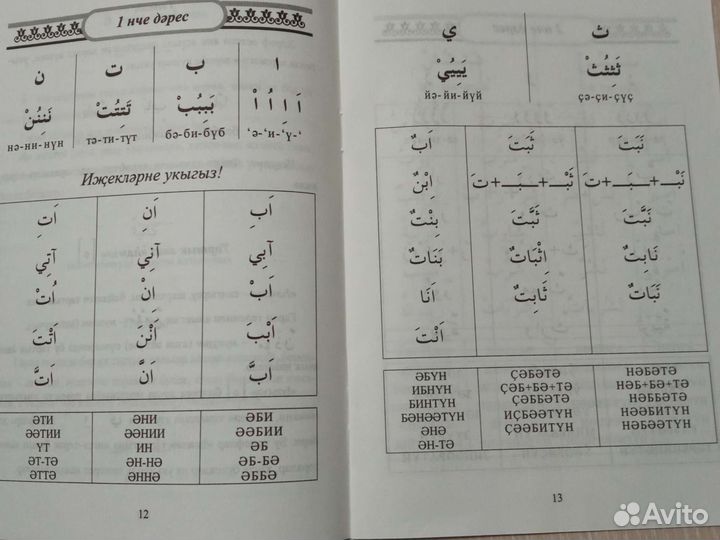 1 нче дәрес
ن ت ب ا
نَنِنُنْ تَتِتُتْ بَبِبُبْ اَاِاُاْ
нә-ни-нүн тә-ти-түт бә-би-бүб ’ә-,’и-,’ү-,’
Иҗекләрне укыгыз!
اَتِ اَنِ اَبِ
آتِي آنِي آبِي
اُتْ اِنْ اَبْ
اَتْتَ اَنْنَ اَبْبَ
اَتَّ اَنَّ اَبَّ
ӘТИ ӘНИ ӘБИ
ӘӘТИИ ӘӘНИИ ӘӘБИИ
ҮТ ИН ӘБ
ӘТ-ТӘ ӘН-НӘ ӘБ-БӘ
ӘТТӘ ӘННӘ ӘББӘ
12
ي ث
يَيِيُيْ ثَثِثُثْ
йә-йи-йүй ҫә-ҫи-ҫүҫ
اَبٌ ثَبَتَ نَبَتَ
اِبْنٌ ثَبْـ+ـبَـ+تَ نَبْـ+ـبَـ+تَ
بِنْتٌ ثَبَّتَ نَبَّتَ
بَنَاتٌ اِثْبَاتٌ نَابِتٌ
اَنَا ثَابِتٌ نَبَاتٌ
اَنْتَ
ӘБҮН ҪӘБӘТӘ НӘБӘТӘ
ИБНҮН ҪӘБ+БӘ+ТӘ НӘБ+БӘ+ТӘ
БИНТҮН ҪӘББӘТӘ НӘББӘТӘ
БӘНӘӘТҮН ИҪБӘӘТҮН НӘӘБИТҮН
ӘНӘ ҪӘӘБИТҮН НӘБӘӘТҮН
ӘН-ТӘ
13
Avito